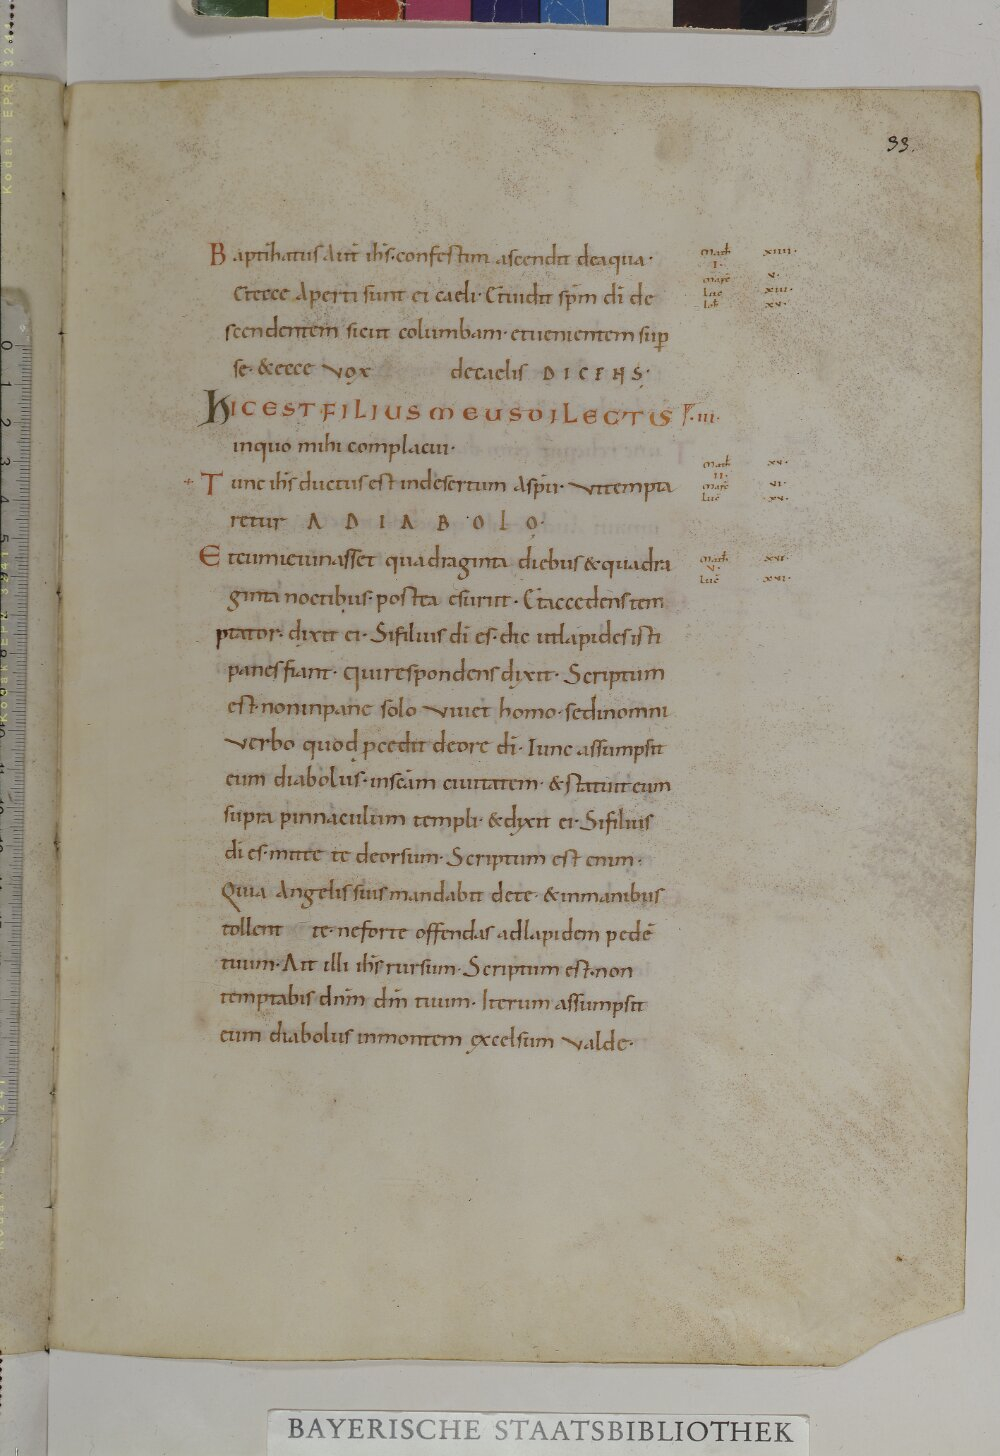 33.
Baptihatus aut̄ ih̄s· confestim ascendit deaqua·
Etecce Aperti sunt ei caeli· Etuidit sp̄m dī de
scendentem sicut columbam· etuenientem sup̄
se· &ecce vox decaelis DICENS·
HICEST FILIUS MEUS DILECTUS F·III·
inquo mihi complacui·
Tunc ih̄s ductus est indesertum Asp̄u· Vttempta
retur A DIABOLO·
Etcumieiunasset quadraginta diebus &quadra
ginta noctibus· postea esuriit· Etaccedens tem
ptator· dixit ei· Sifilius dī es· dic utlapides isti
panes fiant· quirespondens dixit· Scriptum
est· noninpane solo Viuet homo· sedinomni
Verbo quod pcedit deore dī· Tunc assumpsit
eum diabolus· insc̄am ciuitatem· &statuit eum
supra pinnaculum templi· &dixit ei· Sifilius
dī es· mitte te deorsum· Scriptum est enim·
Quia Angelis suis mandabit dete· &inmanibus
tollent te· neforte offendas adlapidem pedē
tuum· Ait illi ih̄s rursum· Scriptum est· non
temptabis dn̄m dm̄ tuum· Iterum assumpsit
eum diabolus inmontem excelsum Valde·
Math̄ XIIII·
I·
Marc̄ V·
Luc̄ XIII·
Ioh̄ XV·
Math̄ XV·
II·
Marc̄ VI·
Luc̄ XV·
Math̄ XVI·
V·
Luc̄ XVI·
Kodak EPR 3241
0 1 2 3 4 5
BAYERISCHE STAATSBIBLIOTHEK